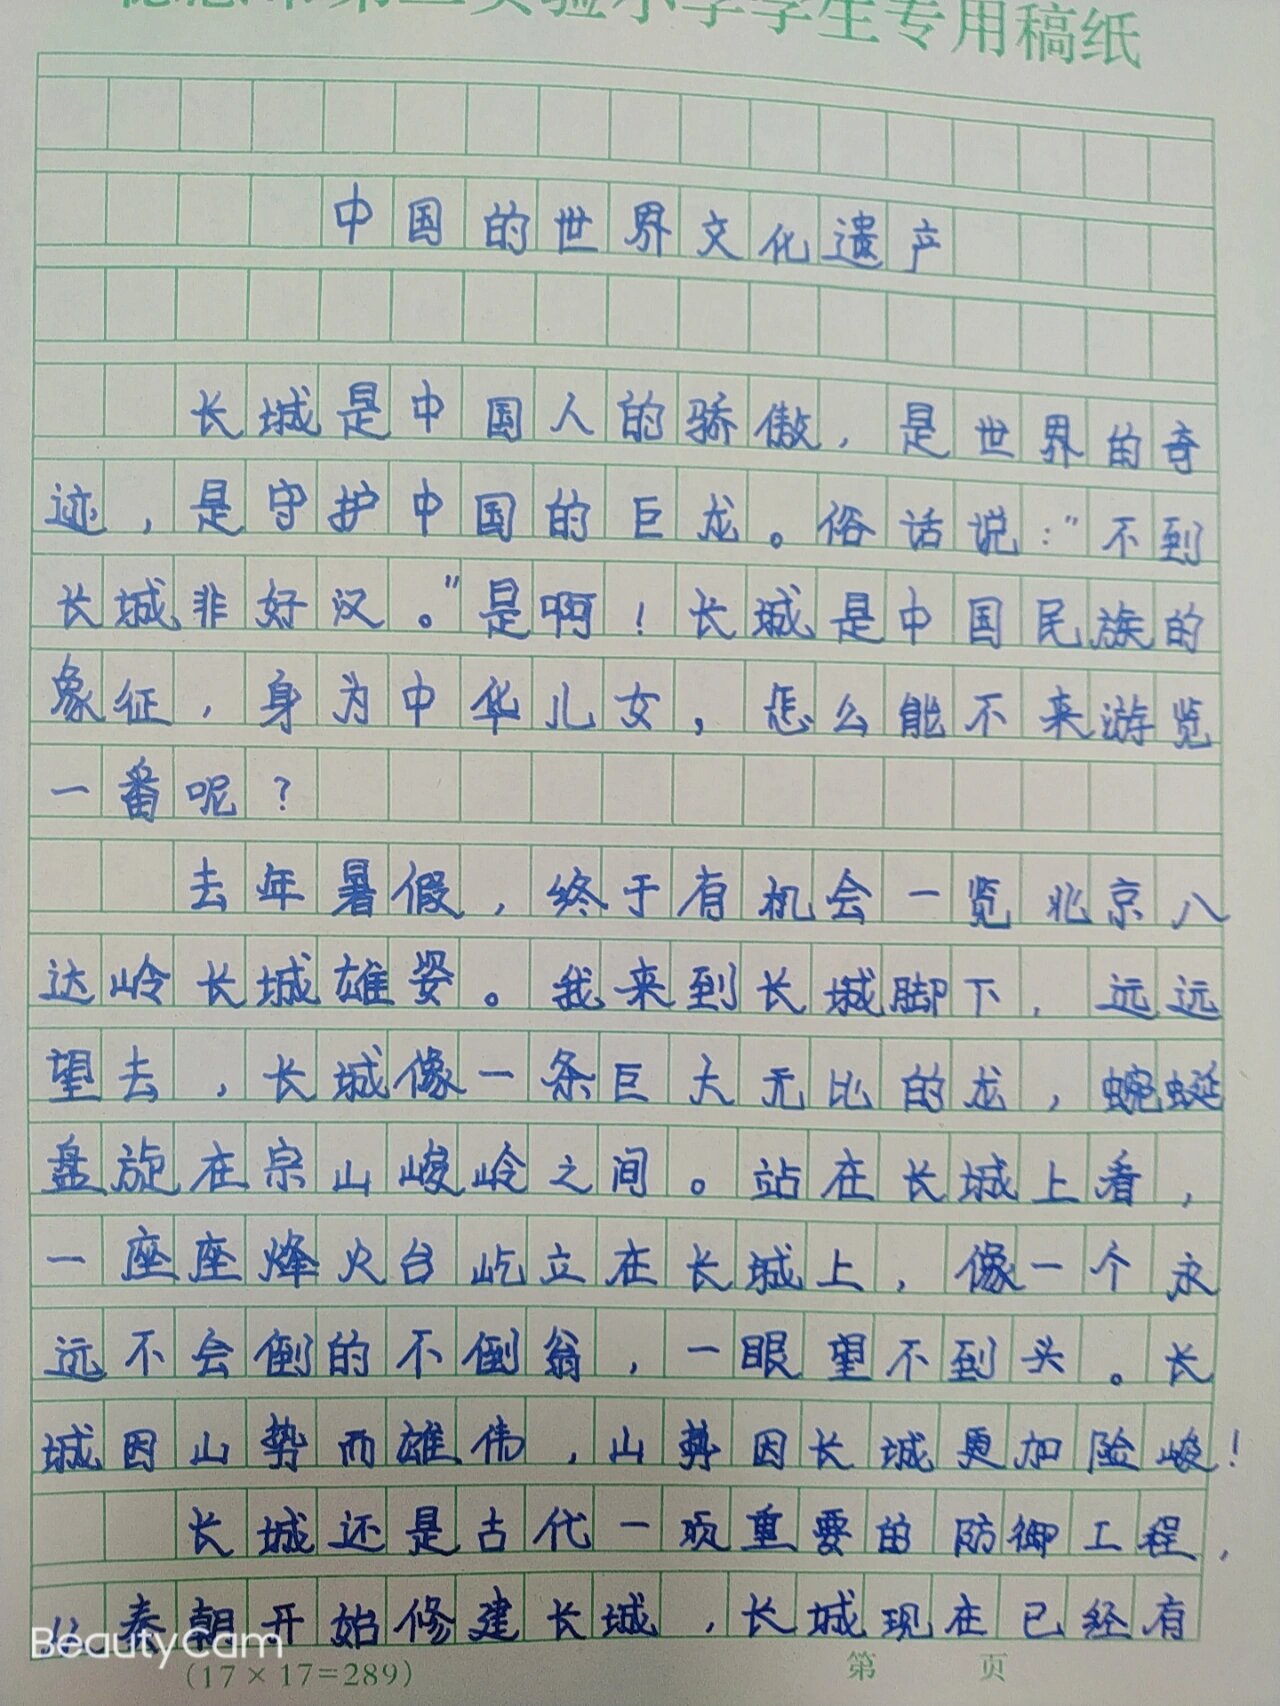 实验小学学生专用稿纸
中国的世界文化遗产
长城是中国人的骄傲，是世界的奇
迹，是守护中国的巨龙。俗话说："不到
长城非好汉。"是啊！长城是中国民族的
象征，身为中华儿女，怎么能不来游览
一番呢？
去年暑假，终于有机会一览北京八
达岭长城雄姿。我来到长城脚下，远远
望去，长城像一条巨大无比的龙，蜿蜒
盘旋在宗山峻岭之间。站在长城上看，
一座座烽火台屹立在长城上，像一个永
远不会倒的不倒翁，一眼望不到头。长
城因山势而雄伟，山势因长城更加险峻！
长城还是古代一项重要的防御工程，
秦朝开始修建长城，长城现在已经有
BeautyCam
(17×17=289)
第 页